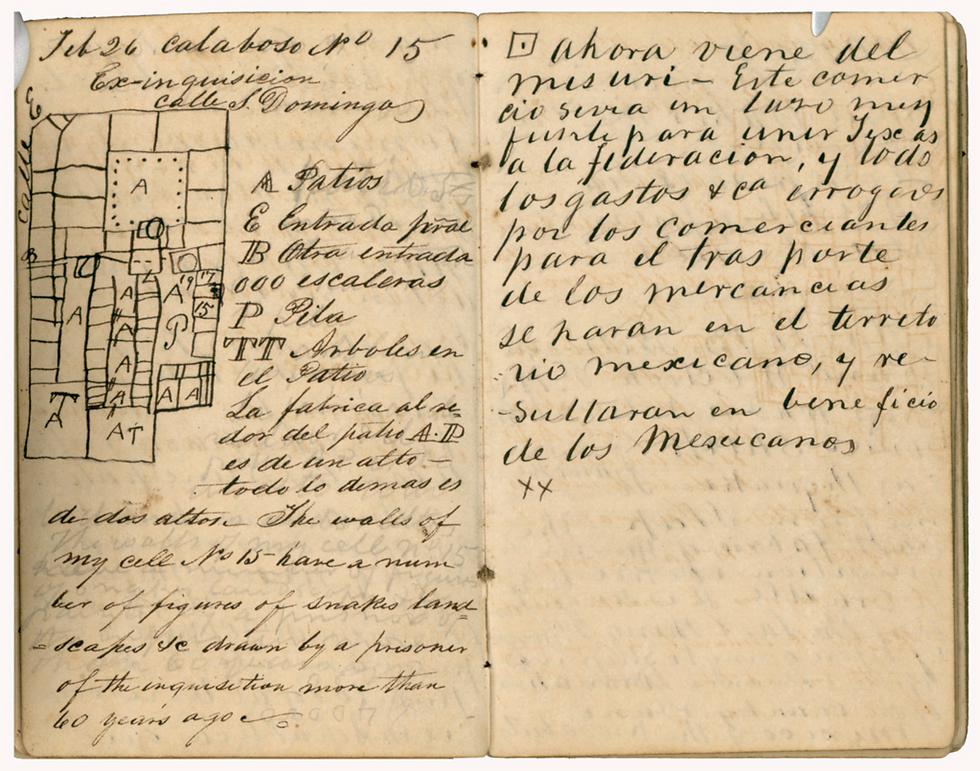 Feb 26 calaboso No 15
Ex-inquisicion
calle S. Domingo
calle
E
A
B
A
A
A
A
A
A
19
17
15
P
A
A
A
T
A T
A Patios
E Entrada pral
B Otra entrada
000 escaleras
P Pila
TT Arboles en
el Patio
La fabrica al re-
dor del patio A.P
es de un alto —
todo lo demas es
de dos altos. The walls of
my cell No 15 have a num
ber of figures of snakes land=
=scapes &c drawn by a prisoner
of the inquisition more than
60 years ago
ahora viene del
misuri — Este comer
cio seria un lazo muy
fuerte para unir Texas
a la federacion, y todo
los gastos & ca errogados
por los comerciantes
para el tras porte
de los mercancias
se haran en el territo
rio mexicano, y re-
-sultaran en bene ficio
de los Mexicanos
xx